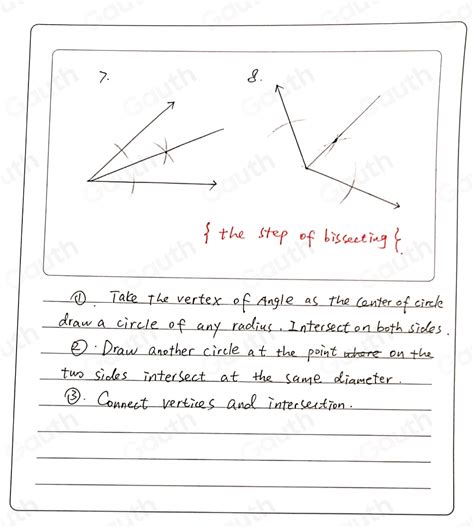 7. 8.
{ the step of bissecting }.
①. Take The vertex of Angle as The Center of circle
draw a circle of any radius. Intersect on both sides.
②. Draw another circle at the point where on the
two sides intersect at the same diameter.
③. Connect vertices and intersection.